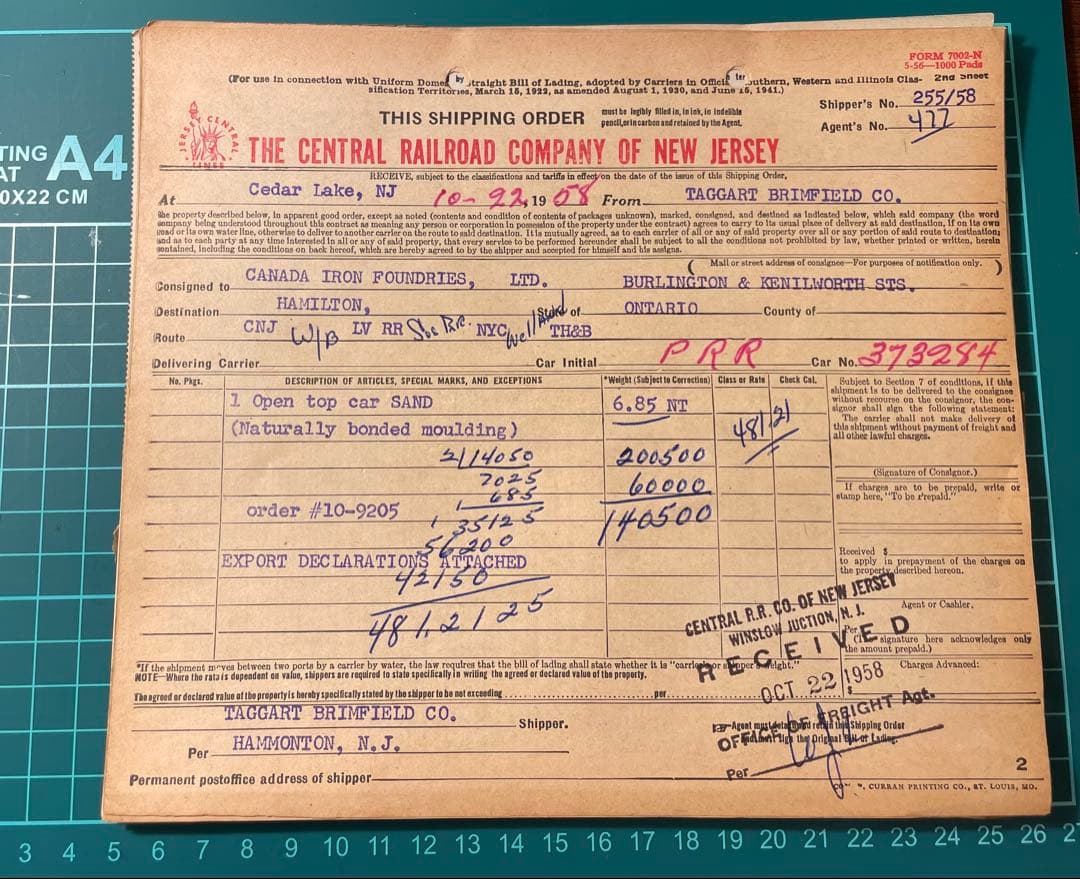 FORM 7002-N
5-56—1000 Pads
2nd Sheet
(For use in connection with Uniform Dome by Straight Bill of Lading, adopted by Carriers in Offici ter outhern, Western and Illinois Clas-
sification Territories, March 15, 1922, as amended August 1, 1930, and June 15, 1941.)
Shipper's No. 255/58
THIS SHIPPING ORDER must be legibly filled in, in ink, in indelible pencil, or in carbon and retained by the Agent.
Agent's No. 477
JERSEY CENTRAL LINES
THE CENTRAL RAILROAD COMPANY OF NEW JERSEY
RECEIVE, subject to the classifications and tariffs in effect on the date of the issue of this Shipping Order,
At Cedar Lake, NJ 10-22, 1958 From TAGGART BRIMFIELD CO.
the property described below, in apparent good order, except as noted (contents and condition of contents of packages unknown), marked, consigned, and destined as indicated below, which said company (the word
company being understood throughout this contract as meaning any person or corporation in possession of the property under the contract) agrees to carry to its usual place of delivery at said destination, if on its own
road or its own water line, otherwise to deliver to another carrier on the route to said destination. It is mutually agreed, as to each carrier of all or any of said property over all or any portion of said route to destination,
and as to each party at any time interested in all or any of said property, that every service to be performed hereunder shall be subject to all the conditions not prohibited by law, whether printed or written, herein
contained, including the conditions on back hereof, which are hereby agreed to by the shipper and accepted for himself and his assigns.
( Mail or street address of consignee—For purposes of notification only. )
Consigned to CANADA IRON FOUNDRIES, LTD. BURLINGTON & KENILWORTH STS.
Destination HAMILTON, State of ONTARIO County of
Route CNJ W/B LV RR NYC TH&B
Delivering Carrier Car Initial PRR Car No. 373284
No. Pkgs. DESCRIPTION OF ARTICLES, SPECIAL MARKS, AND EXCEPTIONS *Weight (Subject to Correction) Class or Rate Check Col.
1 Open top car SAND 6.85 NT
(Naturally bonded moulding) 48121
2/14050 200500
7025 60000
685
order #10-9205 35125 140500
56200
EXPORT DECLARATIONS ATTACHED
42150
481.2125
Subject to Section 7 of conditions, if this
shipment is to be delivered to the consignee
without recourse on the consignor, the con-
signor shall sign the following statement:
The carrier shall not make delivery of
this shipment without payment of freight and
all other lawful charges.
(Signature of Consignor.)
If charges are to be prepaid, write or
stamp here, "To be Prepaid."
Received $
to apply in prepayment of the charges on
the property described hereon.
Agent or Cashier.
Per
(The signature here acknowledges only
the amount prepaid.)
Charges Advanced:
$
CENTRAL R.R. CO. OF NEW JERSEY
WINSLOW JUCTION, N. J.
RECEIVED
OCT 22 1958
OFFICE OF FREIGHT Agt.
*If the shipment moves between two ports by a carrier by water, the law requires that the bill of lading shall state whether it is "carrier's or shipper's weight."
NOTE—Where the rate is dependent on value, shippers are required to state specifically in writing the agreed or declared value of the property.
The agreed or declared value of the property is hereby specifically stated by the shipper to be not exceeding per
TAGGART BRIMFIELD CO. Shipper.
Agent must detach and retain this Shipping Order
and must sign the Original Bill of Lading.
Per HAMMONTON, N.J.
Per
Permanent postoffice address of shipper
2
CURRAN PRINTING CO., ST. LOUIS, MO.
A4
22 CM
3 4 5 6 7 8 9 10 11 12 13 14 15 16 17 18 19 20 21 22 23 24 25 26